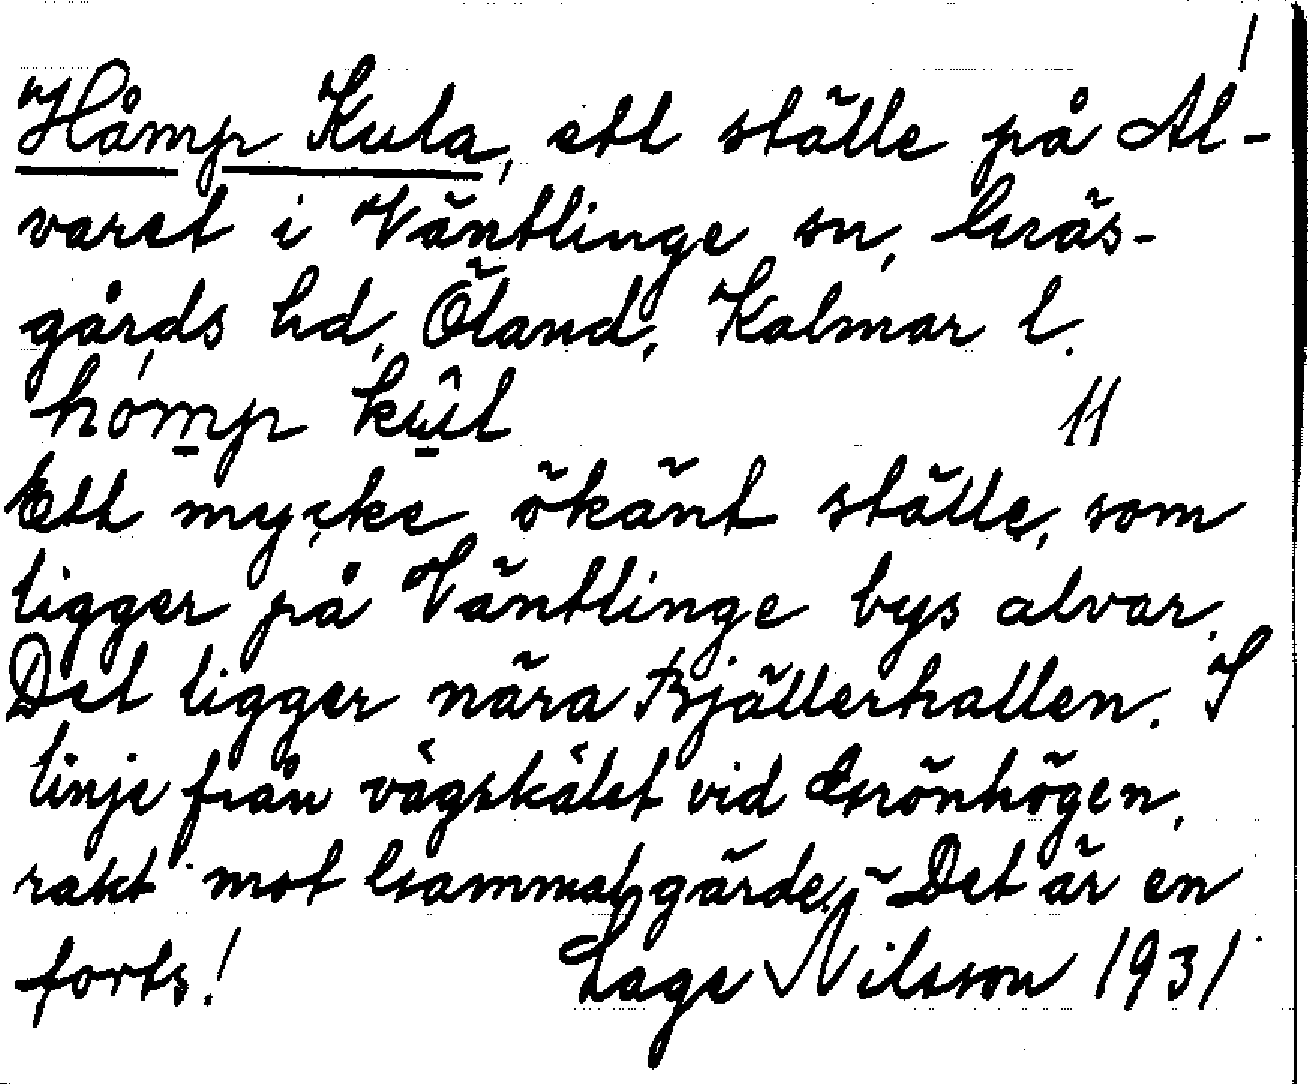 1
Håmp Kula, ett ställe på Al-
varet i Väntlinge sn, Gräs-
gårds hd, Öland, Kalmar l.
hómp kûl 11
Ett mycke ökänt ställe, som
ligger på Väntlinge bys alvar.
Det ligger nära Bjällerhallen. I
linje från vägskälet vid Grönhögen,
rakt mot Gammalgärde. - Det är en
forts! Lage Nilsson 1931